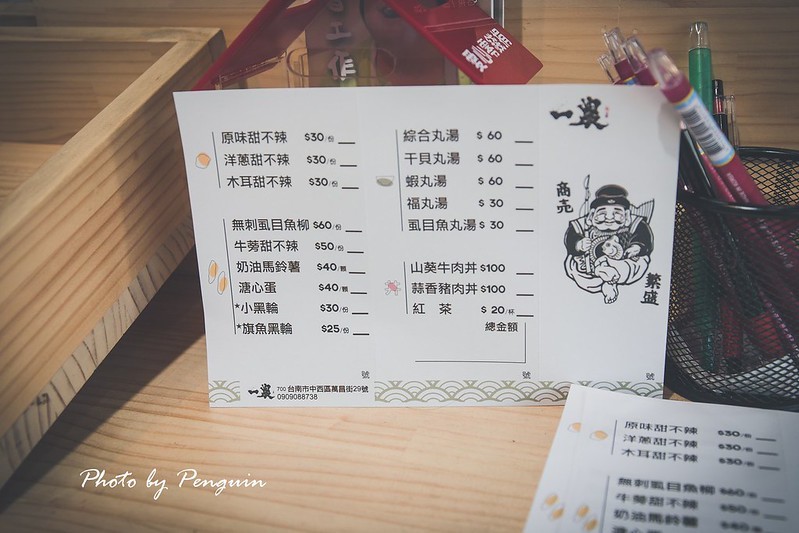 工作
原味甜不辣 $30/份
洋蔥甜不辣 $30/份
木耳甜不辣 $30/份
無刺虱目魚柳 $60/份
牛蒡甜不辣 $50/份
奶油馬鈴薯 $40/顆
溏心蛋 $40/顆
*小黑輪 $30/份
*旗魚黑輪 $25/份
號
一農 700 台南市中西區萬昌街29號
0909088738
綜合丸湯 $ 60
干貝丸湯 $ 60
蝦丸湯 $ 60
福丸湯 $ 30
虱目魚丸湯 $ 30
山葵牛肉丼 $100
蒜香豬肉丼 $100
紅 茶 $ 20/杯
總金額
號
一農
商売
繁盛
號
原味甜不辣 $30/份
洋蔥甜不辣 $30/份
木耳甜不辣 $30/份
無刺虱目魚柳 $60/份
牛蒡甜不辣 $50/份
奶油馬鈴薯 $40/顆
溏心蛋
Photo by Penguin